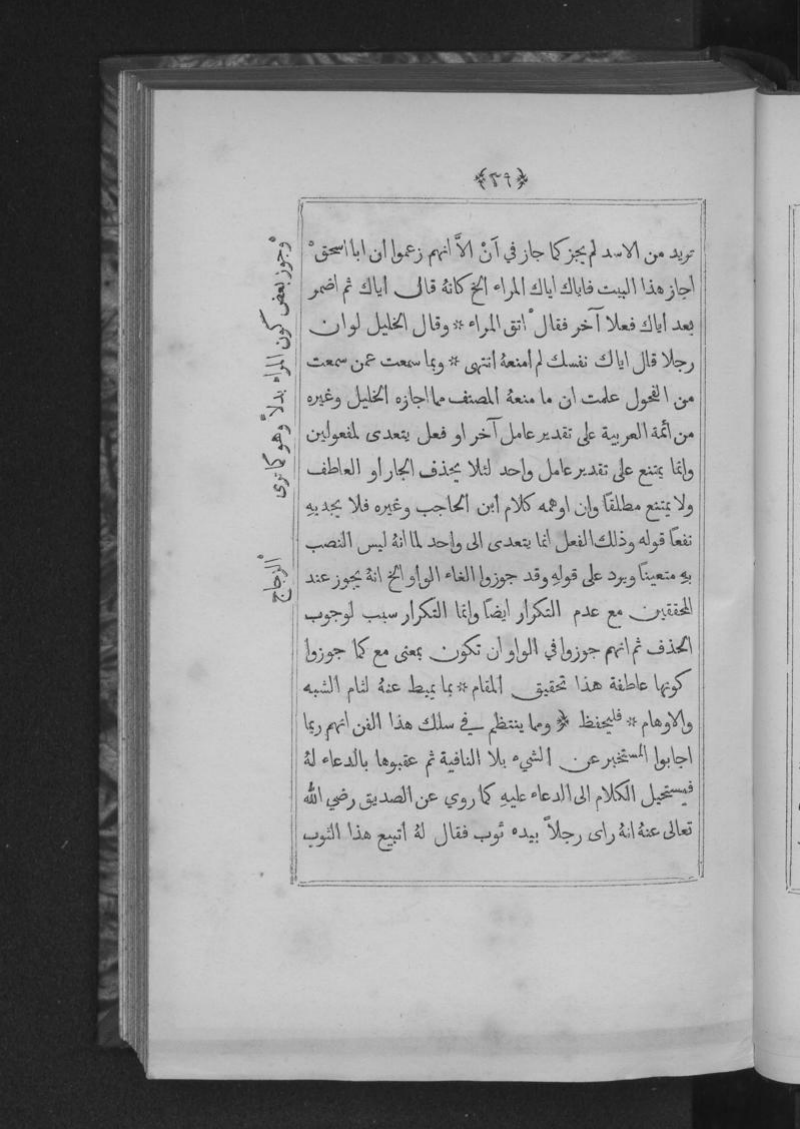 ﴿٣٩﴾
تريد من الاسد لم يجز كما جاز في اَنْ الاَّ انهم زعموا ان ابا اسحق
اجاز هذا البيت فاياك اياك المراء الخ كانهُ قال اياك ثم اضمر
بعد اياك فعلا آخر فقال اتق المراء * وقال الخليل لو ان
رجلا قال اياك نفسك لم امنعهُ انتهى * وبما سمعت عمن سمعت
من الفحول علمت ان ما منعهُ المصنف مما اجازه الخليل وغيره
من ائمة العربية على تقدير عامل آخر او فعل يتعدى لمفعولين
وانما يمتنع على تقدير عامل واحد لئلا يحذف الجار او العاطف
ولا يمتنع مطلقًا وان اوهمه كلام ابن الحاجب وغيره فلا يجديهِ
نفعًا قوله وذلك الفعل انما يتعدى الى واحد لما انهُ ليس النصب
بهِ متعينًا ويرد على قولهِ وقد جوزوا الغاء الواو الخ انهُ يجوز عند
المحققين مع عدم التكرار ايضًا وانما التكرار سبب لوجوب
الحذف ثم انهم جوزوا في الواو ان تكون بمعنى مع كما جوزوا
كونها عاطفة هذا تحقيق المقام * بما يميط عنهُ لثام الشبه
والاوهام * فليحفظ ﴿ ومما ينتظم في سلك هذا الفن انهم ربما
اجابوا المستخبر عن الشيء بلا النافية ثم عقبوها بالدعاء لهُ
فيستحيل الكلام الى الدعاء عليهِ كما روي عن الصديق رضي الله
تعالى عنهُ انهُ راى رجلاً بيده ثوب فقال لهُ اتبيع هذا الثوب
وجوز بعض كون المراء بدلاً وهو كما ترى
الزجاج